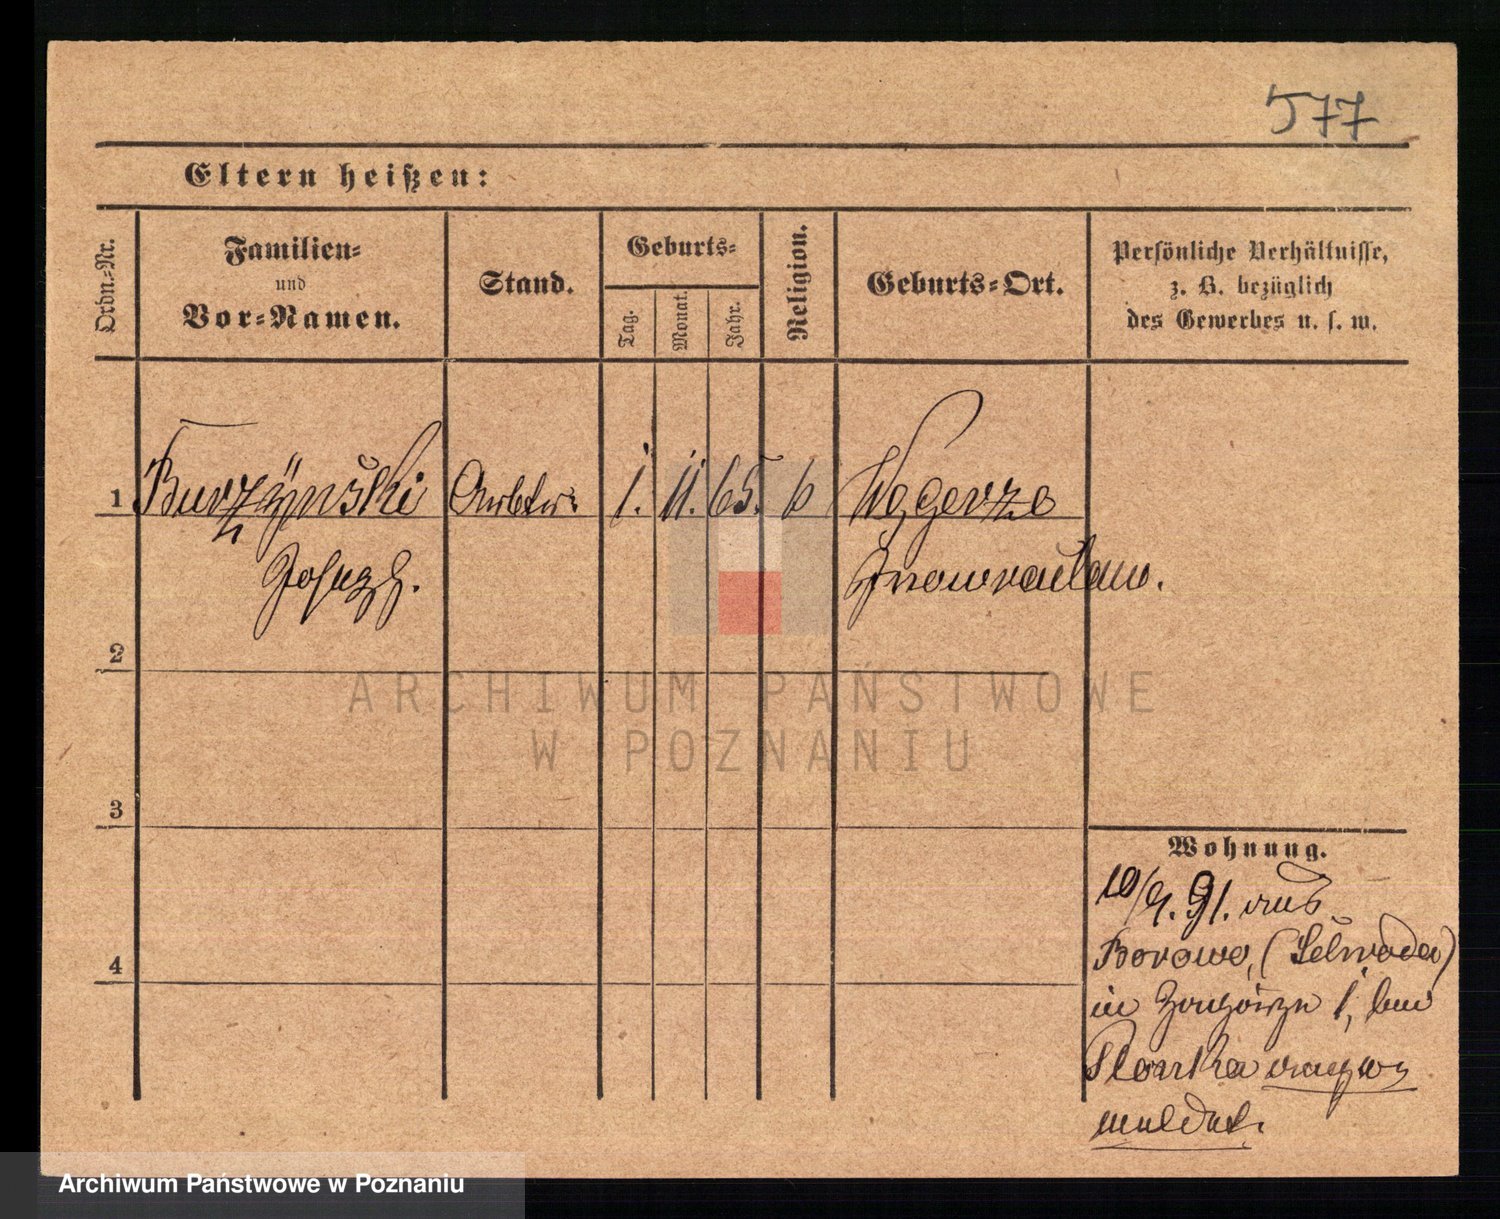 577
Eltern heißen:
Ordn.-Nr.
Familien-
und
Vor-Namen.
Stand.
Geburts-
Tag.
Monat.
Jahr.
Religion.
Geburts-Ort.
Persönliche Verhältnisse,
z. B. bezüglich
des Gewerbes u. s. w.
1 Burzÿnski 1. 11. 65.
Joseph.
Inowraclaw.
2
3
4
Wohnung.
91. aus
Borowo,
in 1, bei
ARCHIWUM PAŃSTWOWE
W POZNANIU
Archiwum Państwowe w Poznaniu